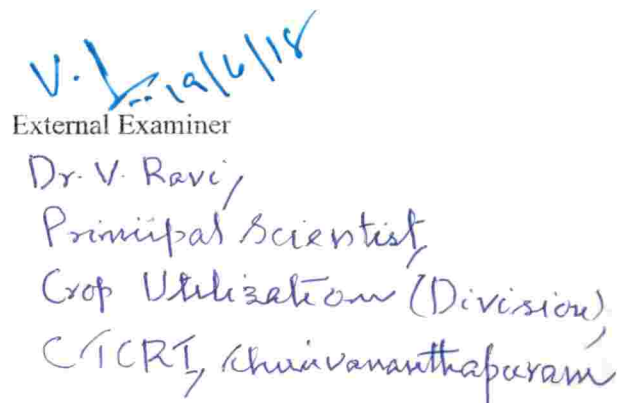 V. 19/6/18
External Examiner
Dr. V. Ravi,
Principal Scientist,
Crop Utilization (Division),
CTCRI, Thiruvananthapuram